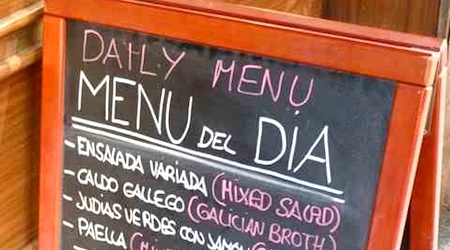 DAILY MENU
MENU DEL DIA
- ENSALADA VARIADA (MIXED SALAD)
- CALDO GALLEGO (GALICIAN BROTH)
- JUDIAS VERDES CON
- PAELLA